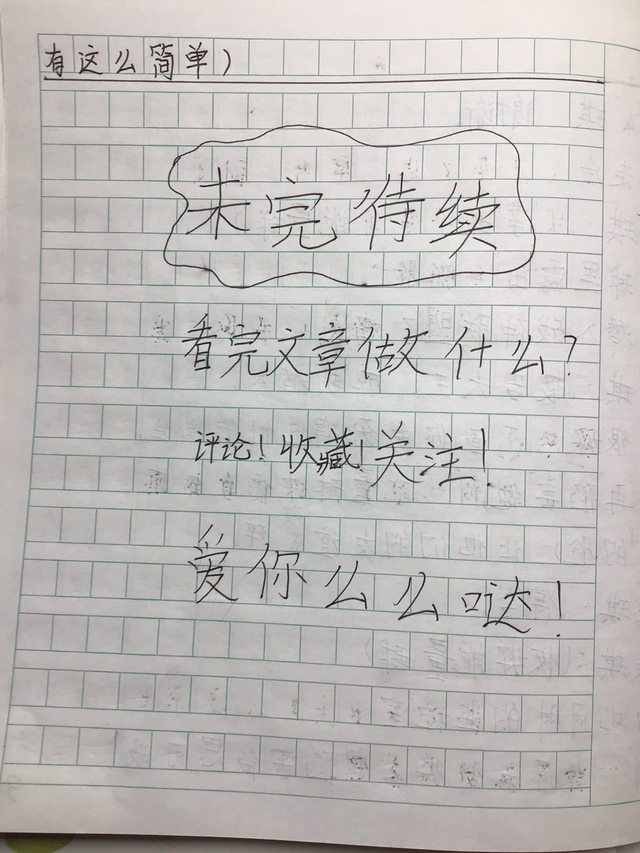 有这么简单）
未完待续
看完文章做什么？
评论！收藏！关注！
爱你么么哒！